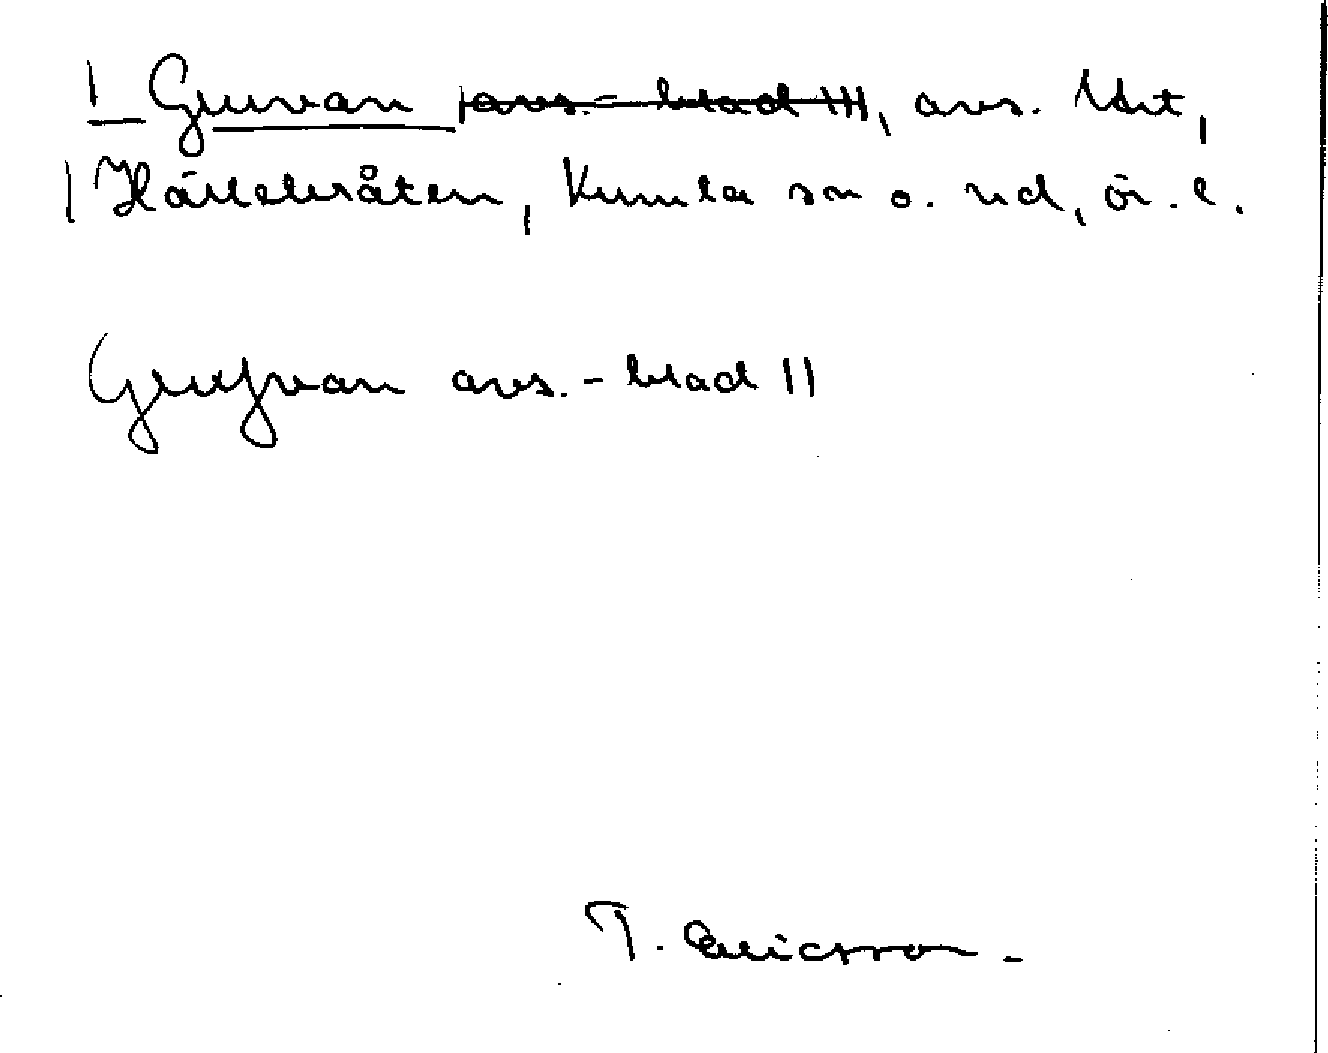 Gruvan avs.-blad III, avs. Urt,
Hällebråten, Kumla sn o. hd, ör. l.
Grufvan avs.-blad II
T. Ericsson